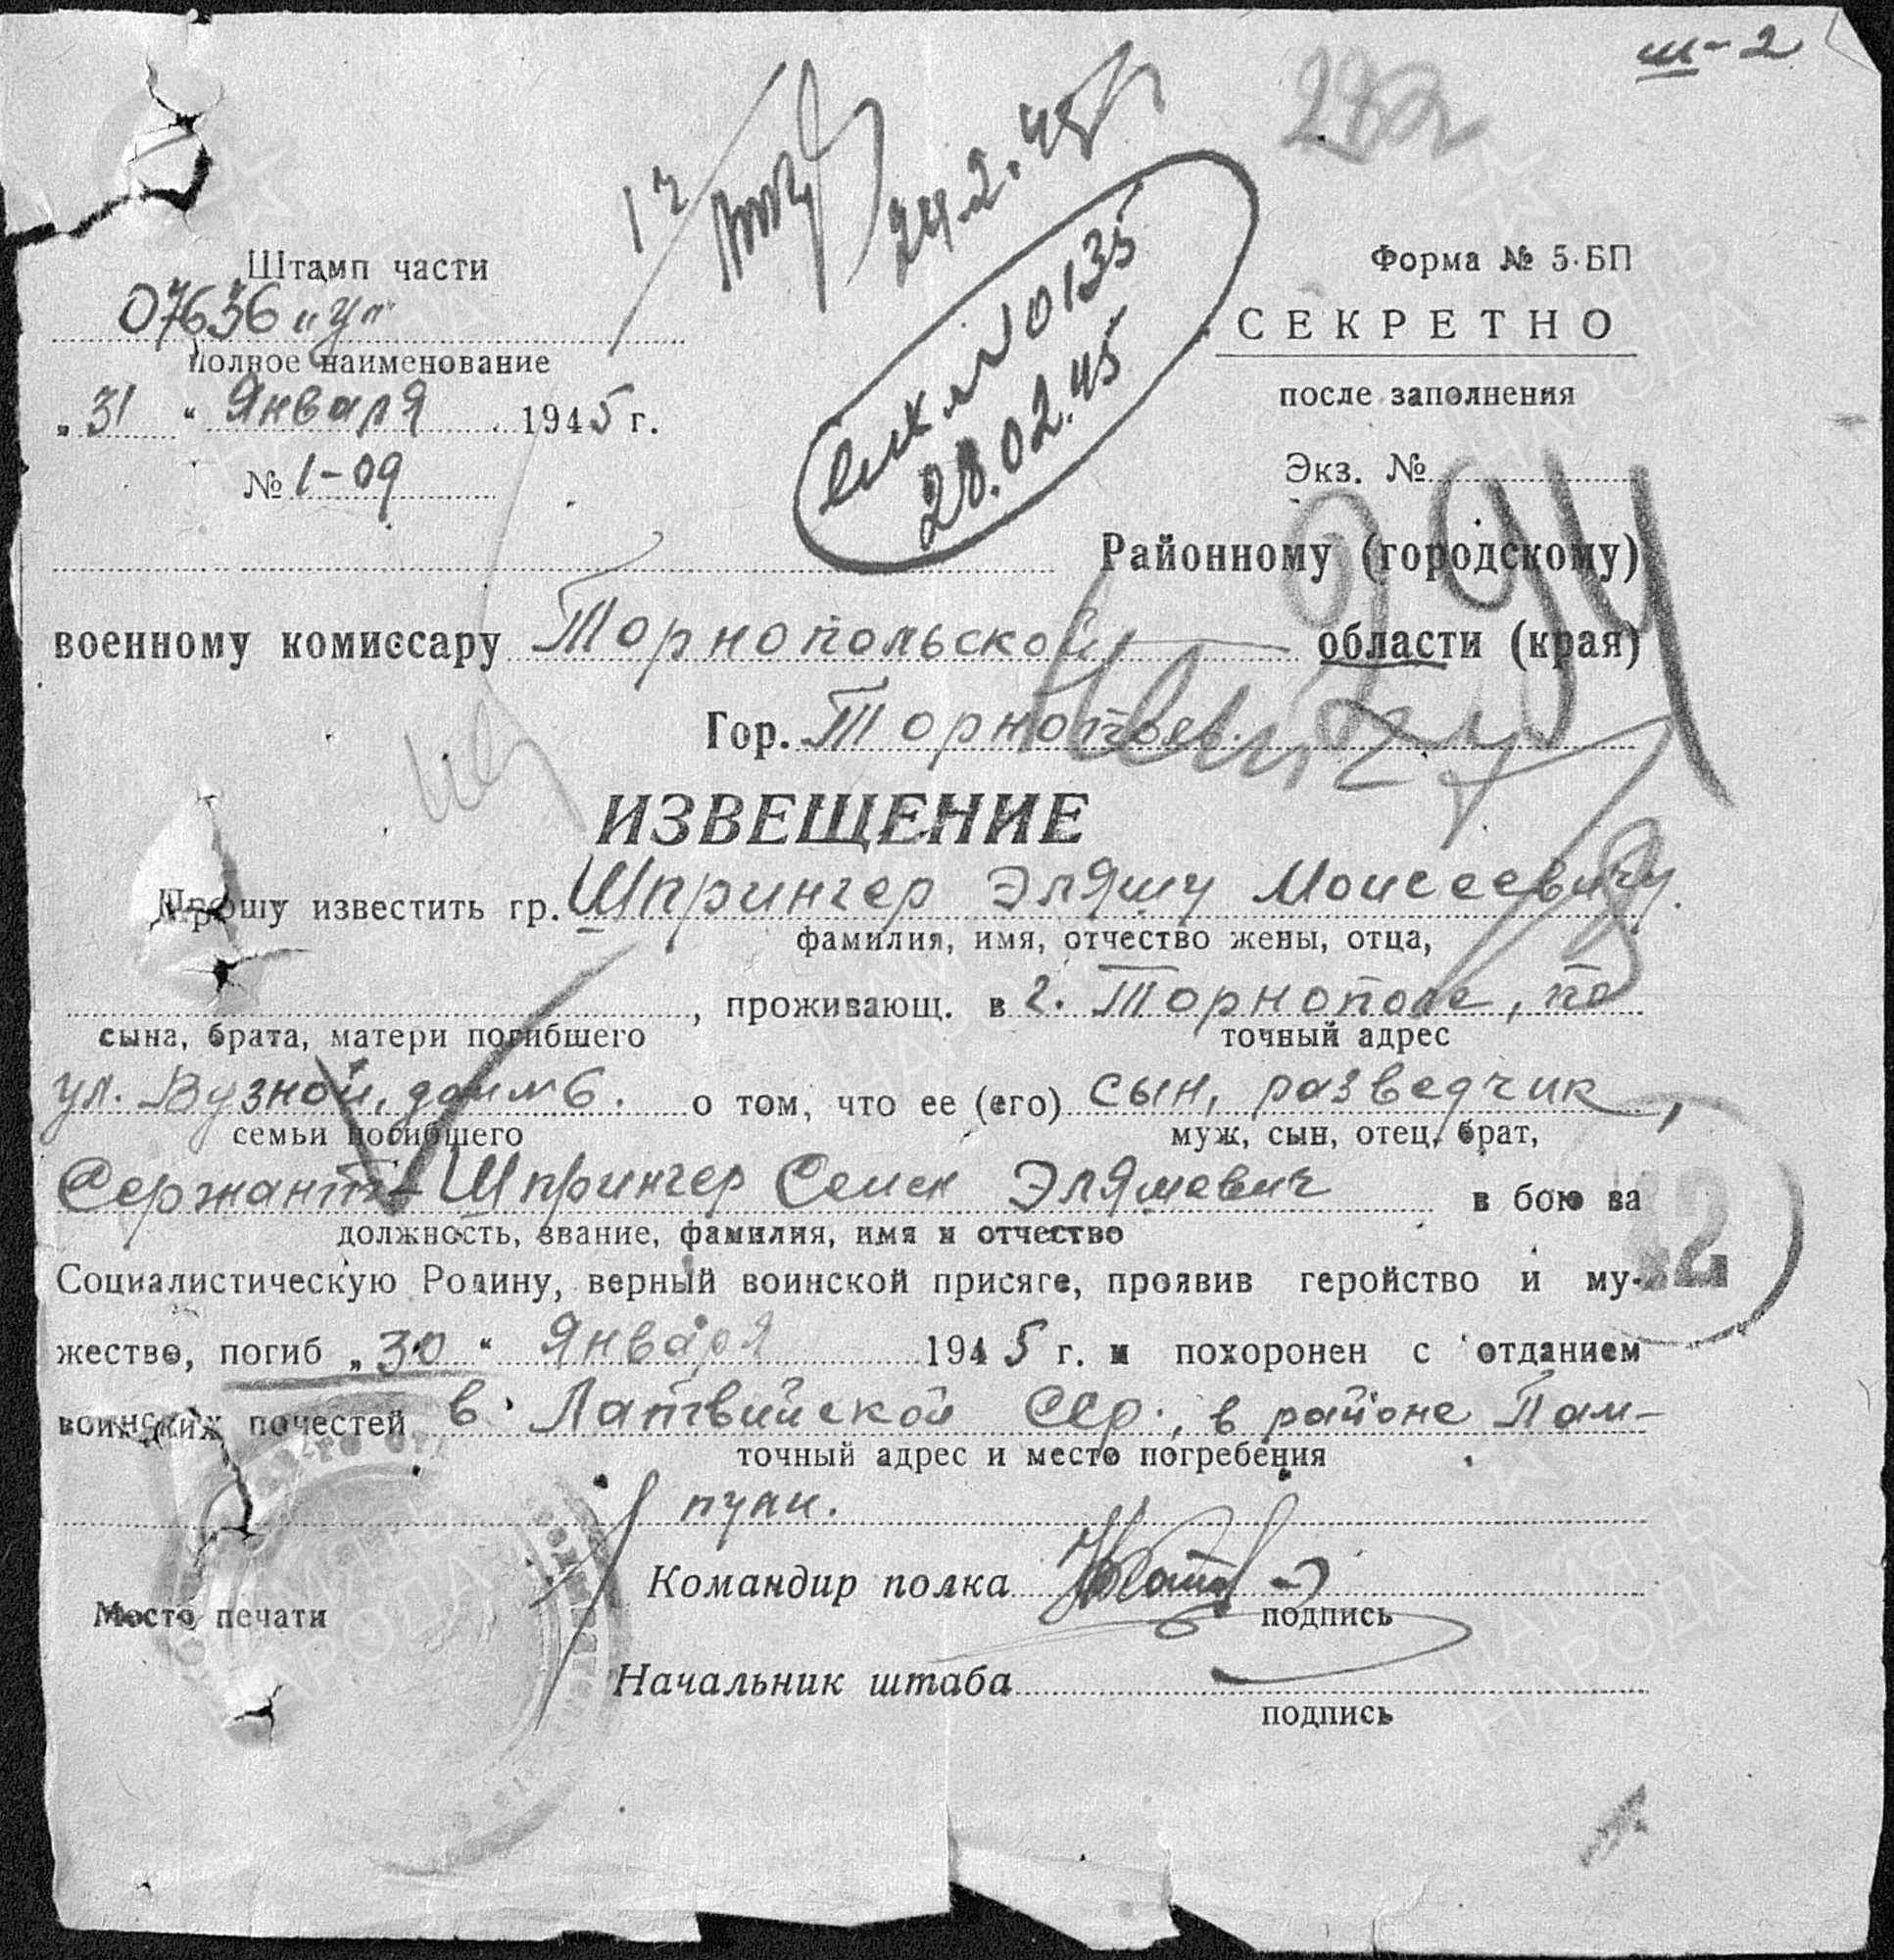 ш-2
282
24.2.45
Штамп части
07636 „У“
Форма № 5-БП
СЕКРЕТНО
полное наименование
после заполнения
„31“ Января 1945 г.
№ 0135
28.02.45
№ 1-09
Экз. №
Районному (городскому)
военному комиссару Торнопольской области (края)
Гор. Торнополь.
ИЗВЕЩЕНИЕ
Прошу известить гр. Шпрингер Эляшу Моисеевичу.
фамилия, имя, отчество жены, отца,
, проживающ. в г. Торнополе, по
сына, брата, матери погибшего точный адрес
ул. Вузной, дом №6. о том, что ее (его) сын, разведчик,
семьи погибшего муж, сын, отец, брат,
Сержант - Шпрингер Семен Эляшевич в бою за
должность, звание, фамилия, имя и отчество
Социалистическую Родину, верный воинской присяге, проявив геройство и му-
жество, погиб „30“ Января 1945 г. и похоронен с отданием
воинских почестей в Латвийской ССР, в районе Пам-
точный адрес и место погребения
пули.
Командир полка
подпись
Место печати
Начальник штаба
подпись
ПАМЯТЬ
НАРОДА